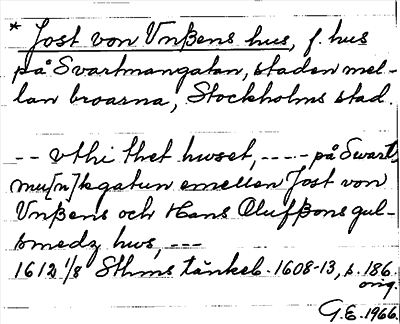 * Jost von Vnßens hus, f. hus
på Svartmangatan, staden mel-
lan broarna, Stockholms stad.
-- vthi thet huset, ---- på Swart
mu[n]kgatun emellen Jost von
Vnßens och Hans Olufßons gul-
smedz hus, ---
1612 1/8 Sthms tänkeb. 1608-13, s. 186.
orig.
G.E. 1966.